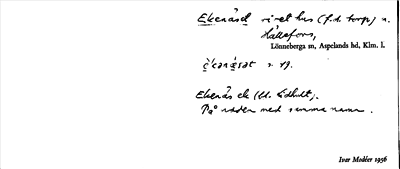 Ekenäset rivet hus (f.d. torp) n.
Hällefors,
Lönneberga sn, Aspelands hd, Klm. l.
s. 19.
Ekenäs ek (bl.
På udden med samma namn.
Ivar Modéer 1956